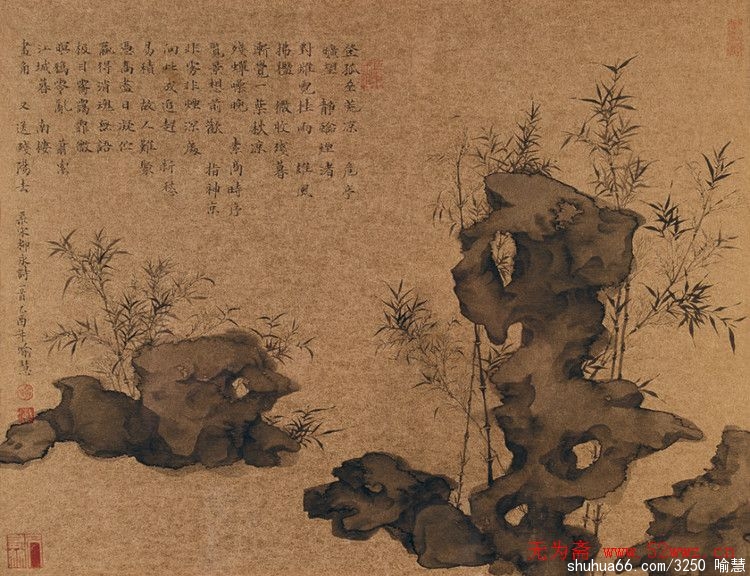 登孤壘荒涼 危亭
曠望 靜臨煙渚
對雌霓挂雨 雄風
拂檻 微收殘暮
漸覺一葉秋涼
殘蟬噪晚 素商時序
覽景想前歡 指神京
非霧非煙深處
向此成追趕 新愁
易積 故人難聚
憑高盡日凝佇
贏得消魂無語
極目霽靄霏微
暝鴉零亂 蕭索
江城暮 南樓
畫角 又送殘陽去
宋柳永詩一首 乙酉年喻慧
无为斋 www.52wwz.cn
shuhua66.com/3250 喻慧